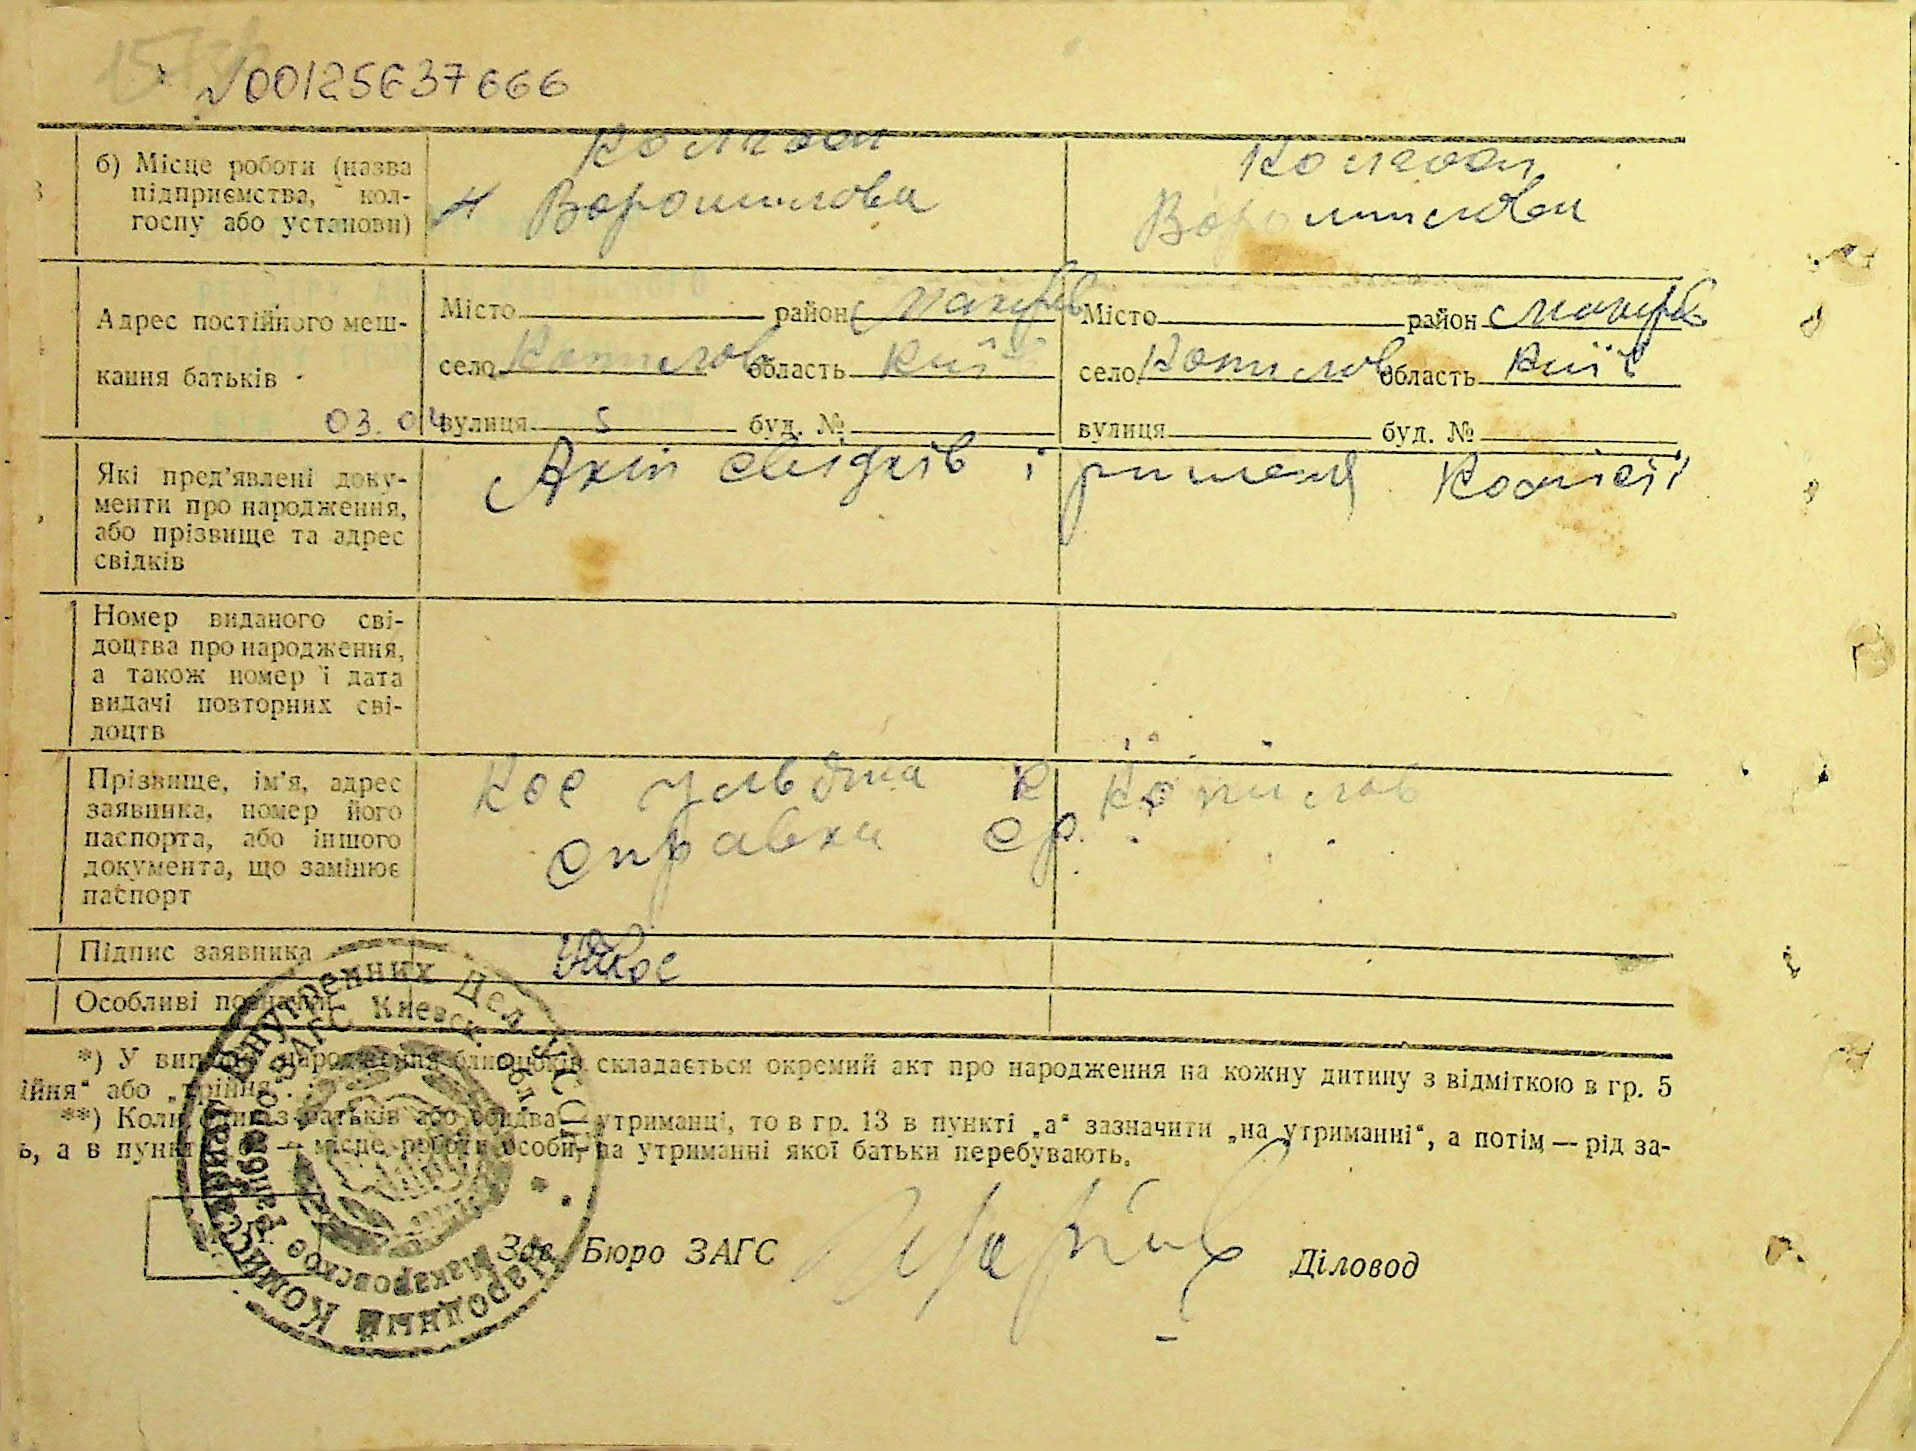 00125637666
б) Місце роботи (назва
підприємства, кол-
госпу або установи)
Колгосп
Ворошилова
Колгосп
Ворошилова
Адрес постійного меш-
кання батьків
03.04
Місто район Макарів
село Копилов область Київ
вулиця 5 буд. №
Місто район Макарів
село Копилов область Київ
вулиця буд. №
Які пред'явлені доку-
менти про народження,
або прізвище та адрес
свідків
Акт свідків і рішення Комісії
Номер виданого сві-
доцтва про народження,
а також номер і дата
видачі повторних сві-
доцтв
Прізвище, ім'я, адрес
заявника, номер його
паспорта, або іншого
документа, що замінює
паспорт
Кос Ульяна с. Копилов
справка ср.
Підпис заявника
УКос
Особливі позначки
*) У випадку народження близнюків складається окремий акт про народження на кожну дитину з відміткою в гр. 5
ійня“ або „трійня“.
**) Коли один з батьків або обидва утриманці, то в гр. 13 в пункті „а“ зазначити „на утриманні“, а потім — рід за-
ь, а в пункті — місце роботи особи, на утриманні якої батьки перебувають.
Зав. Бюро ЗАГС
Діловод
Народный Комиссариат Внутренних Дел УССР
Макаровское Районное Бюро ЗАГС Киевск. обл.